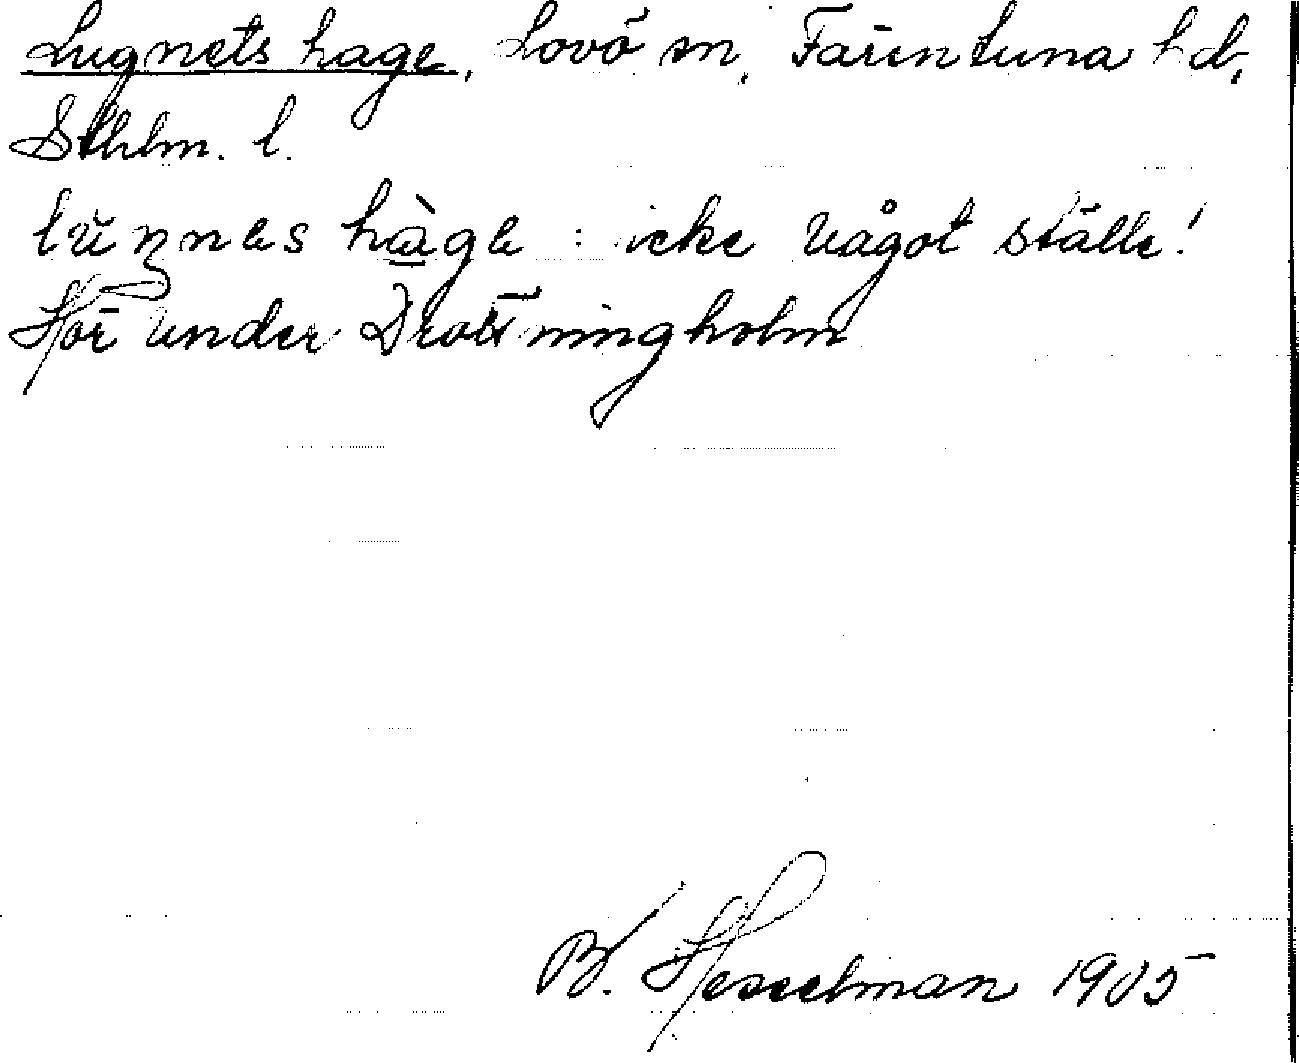 Lugnets hage, Lovö sn, Färentuna hd,
Sthlm. l.
lŭŋnes hàge : icke något ställe!
Hör under Drottningholm
B. Hesselman 1905